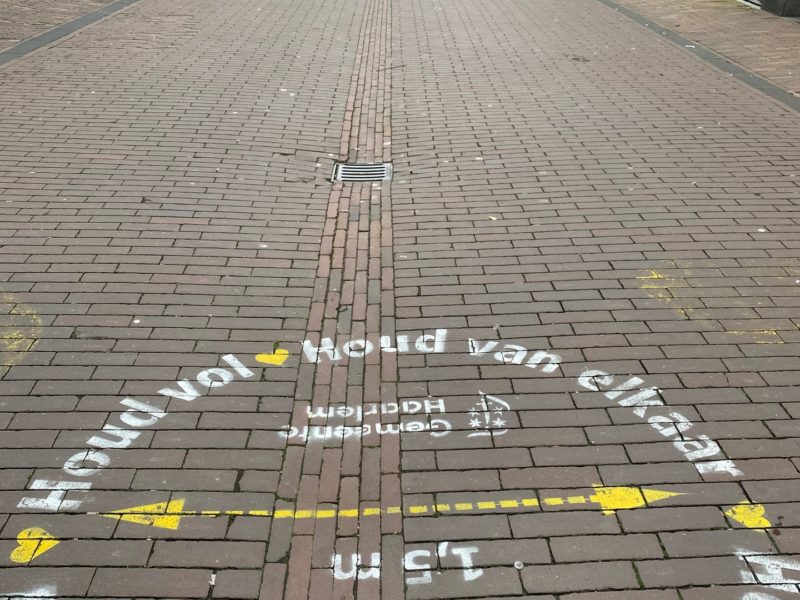 Houd vol Houd van elkaar
Gemeente
Haarlem
1,5m